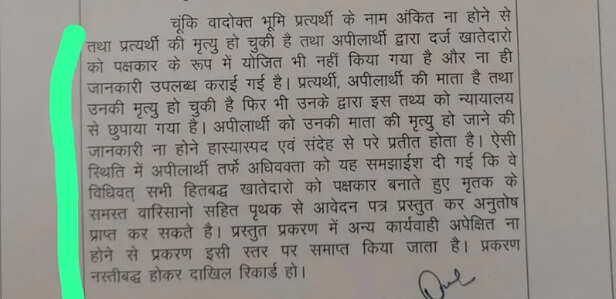 चूंकि वादोक्त भूमि प्रत्यर्थी के नाम अंकित ना होने से
तथा प्रत्यर्थी की मृत्यु हो चुकी है तथा अपीलार्थी द्वारा दर्ज खातेदारो
को पक्षकार के रूप में योजित भी नहीं किया गया है और ना ही
जानकारी उपलब्ध कराई गई है। प्रत्यर्थी, अपीलार्थी की माता है तथा
उनकी मृत्यु हो चुकी है फिर भी उनके द्वारा इस तथ्य को न्यायालय
से छुपाया गया है। अपीलार्थी को उनकी माता की मृत्यु हो जाने की
जानकारी ना होने हास्यास्पद एवं संदेह से परे प्रतीत होता है। ऐसी
स्थिति में अपीलार्थी तर्फे अधिवक्ता को यह समझाईश दी गई कि वे
विधिवत् सभी हितबद्ध खातेदारो को पक्षकार बनाते हुए मृतक के
समस्त वारिसानो सहित पृथक से आवेदन पत्र प्रस्तुत कर अनुतोष
प्राप्त कर सकते है। प्रस्तुत प्रकरण में अन्य कार्यवाही अपेक्षित ना
होने से प्रकरण इसी स्तर पर समाप्त किया जाता है। प्रकरण
नस्तीबद्ध होकर दाखिल रिकार्ड हो।